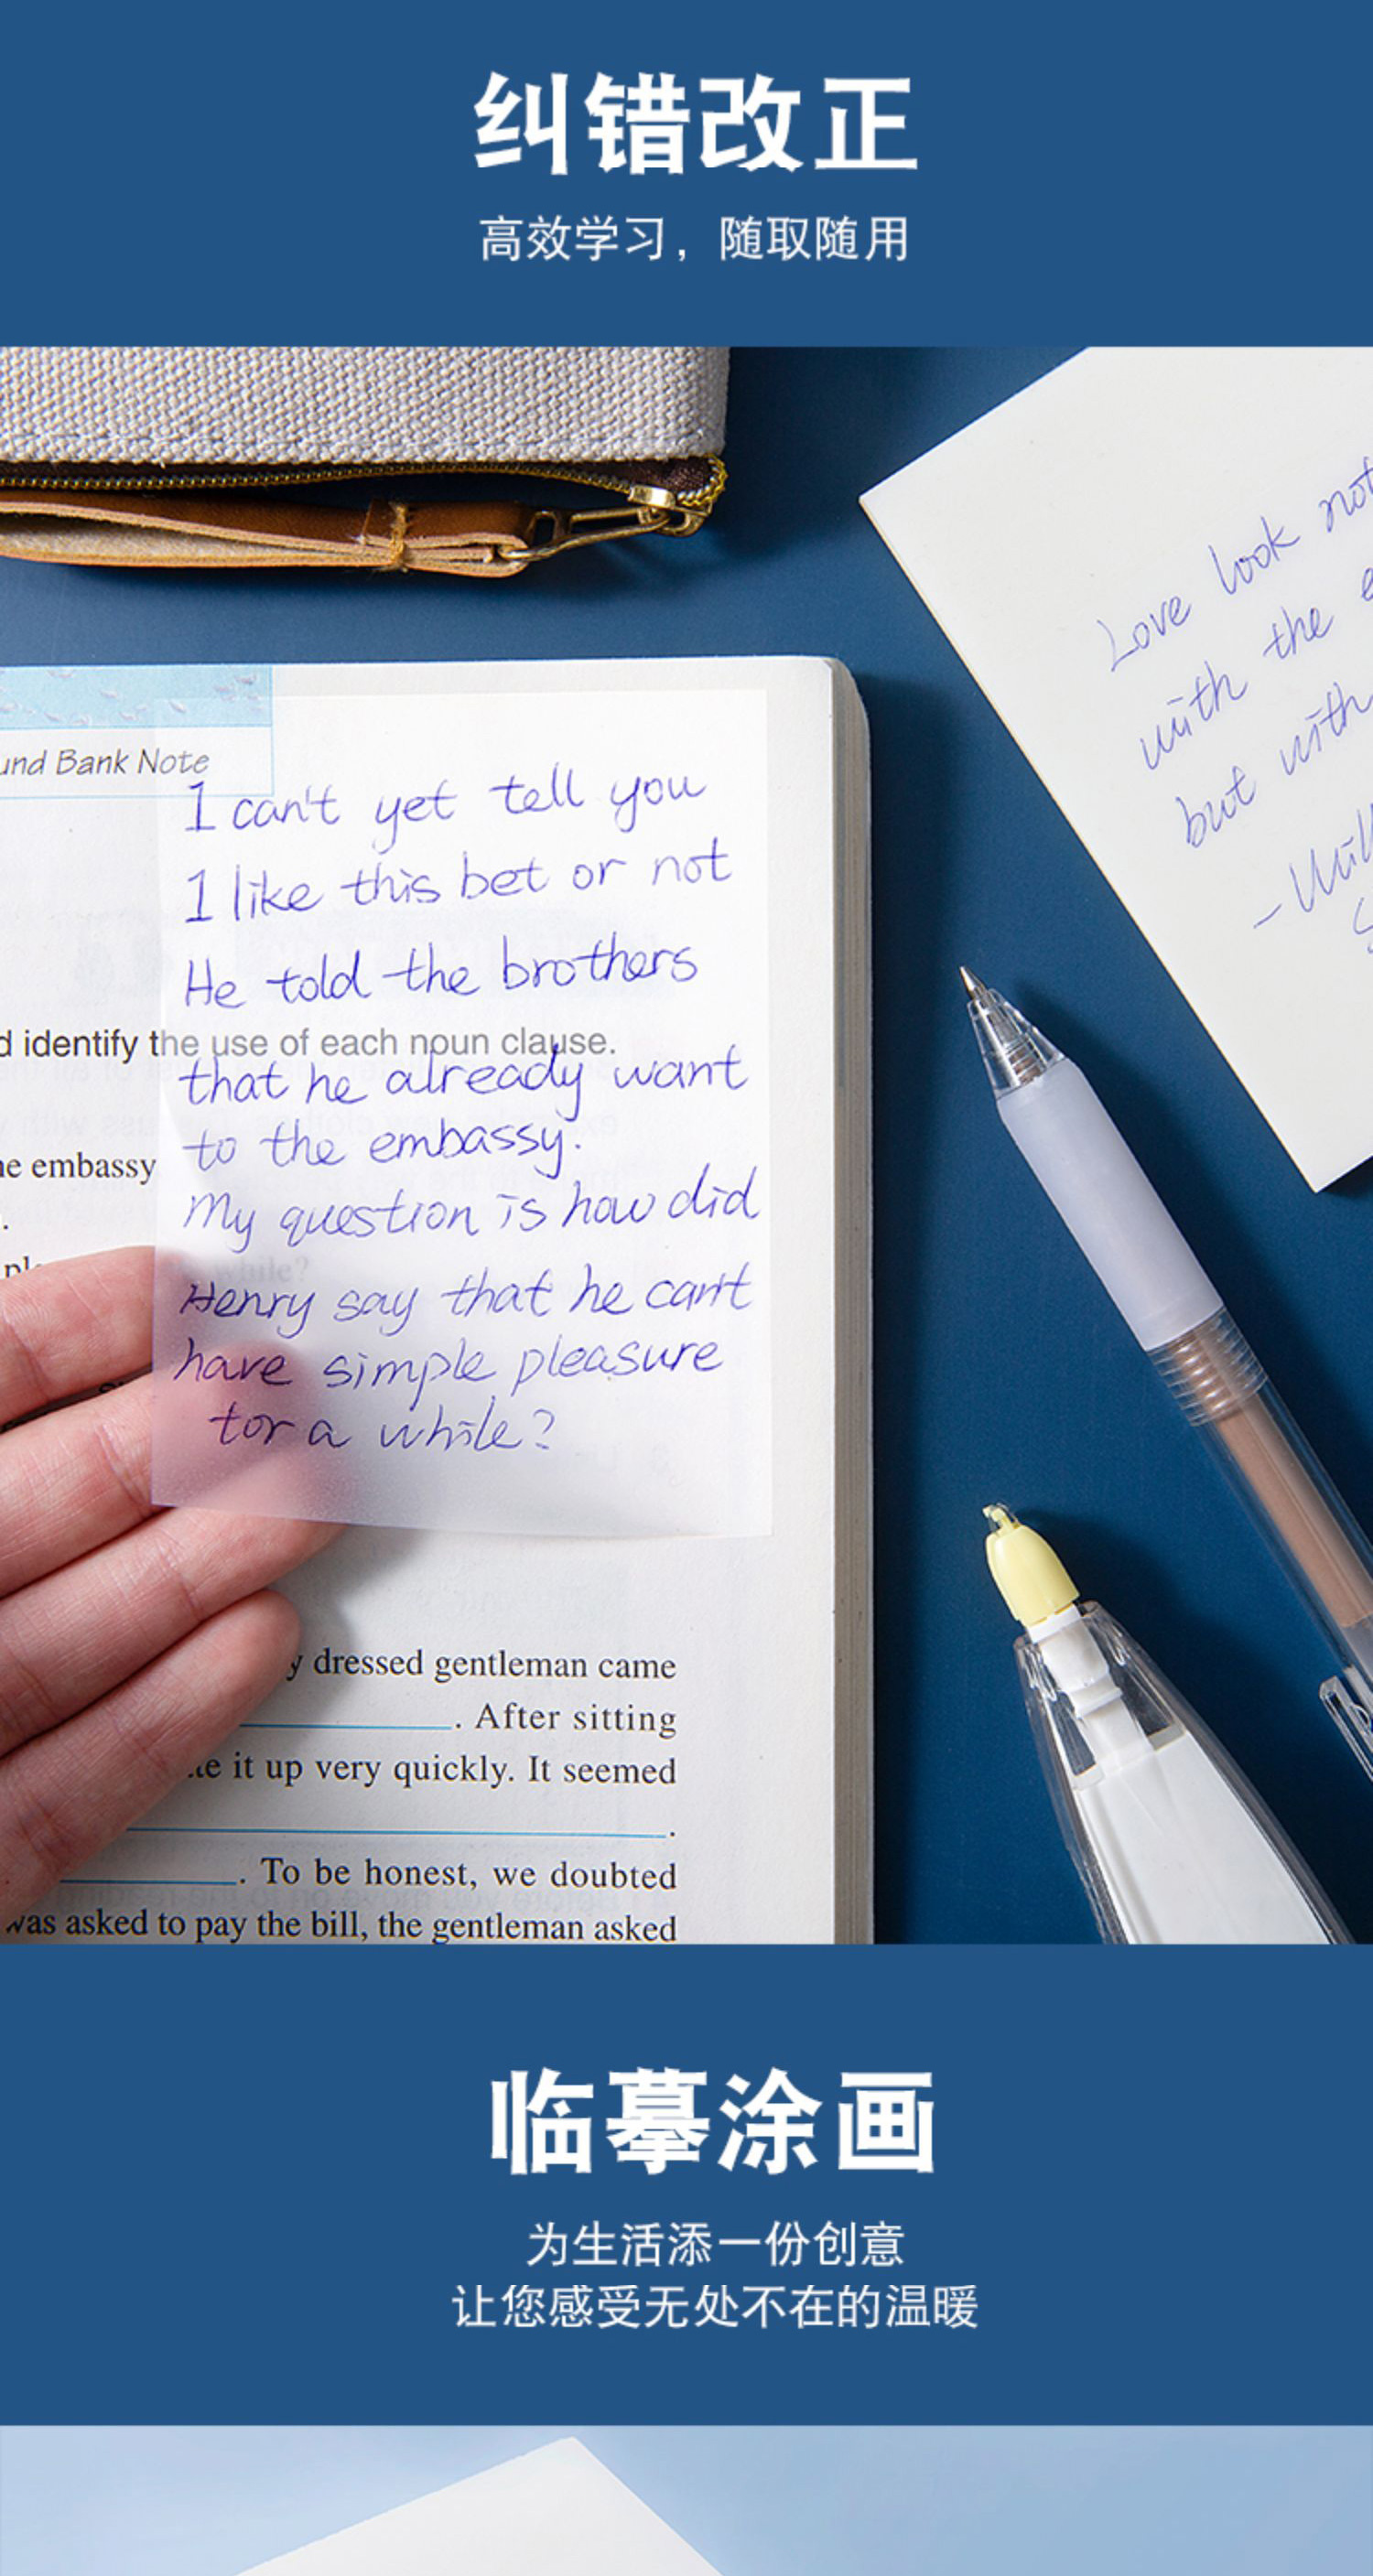 纠错改正
高效学习，随取随用
Love look not
with the
but with
und Bank Note
I can't yet tell you
I like this bet or not
He told the brothers
d identify the use of each noun clause.
that he already want
to the embassy.
he embassy
My question is how did
while?
Henry say that he can't
have simple pleasure
for a while?
y dressed gentleman came
. After sitting
it up very quickly. It seemed
.
. To be honest, we doubted
was asked to pay the bill, the gentleman asked
临摹涂画
为生活添一份创意
让您感受无处不在的温暖